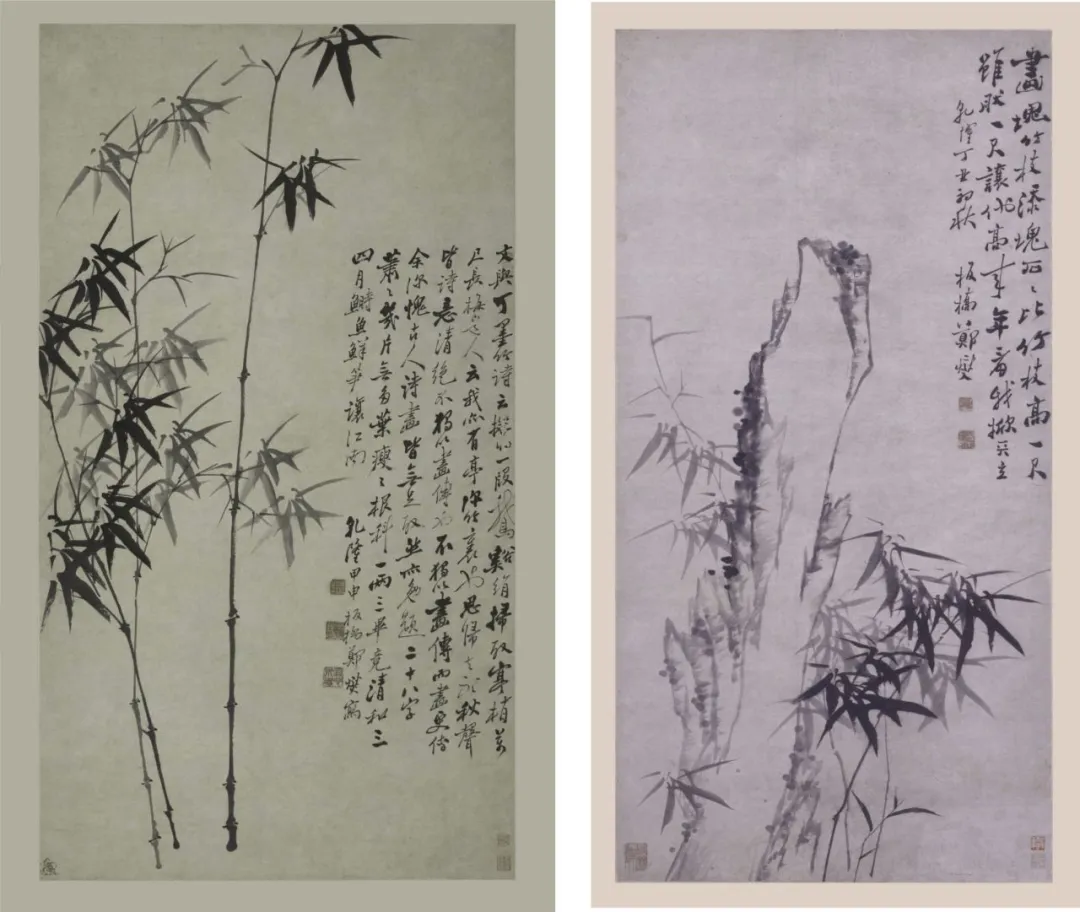 文與可墨竹詩云擬將一段鵝谿絹掃取寒梢萬
尺長梅道人云我亦有亭深竹裏也思歸去聽秋聲
皆詩意清絕不獨以畫傳也不獨以畫傳而畫更傳
余深愧古人詩畫皆無足取然亦題二十八字
蕭〻幾片無多葉瘦〻根科一兩三畢竟清和三
四月鰣魚鮮笋讓江南
乾隆甲申板橋鄭燮寫
畫塊竹枝添塊石〻比竹枝高一尺
雖然一尺讓他高來年看我掀天立
乾隆丁丑初秋 板橋鄭燮